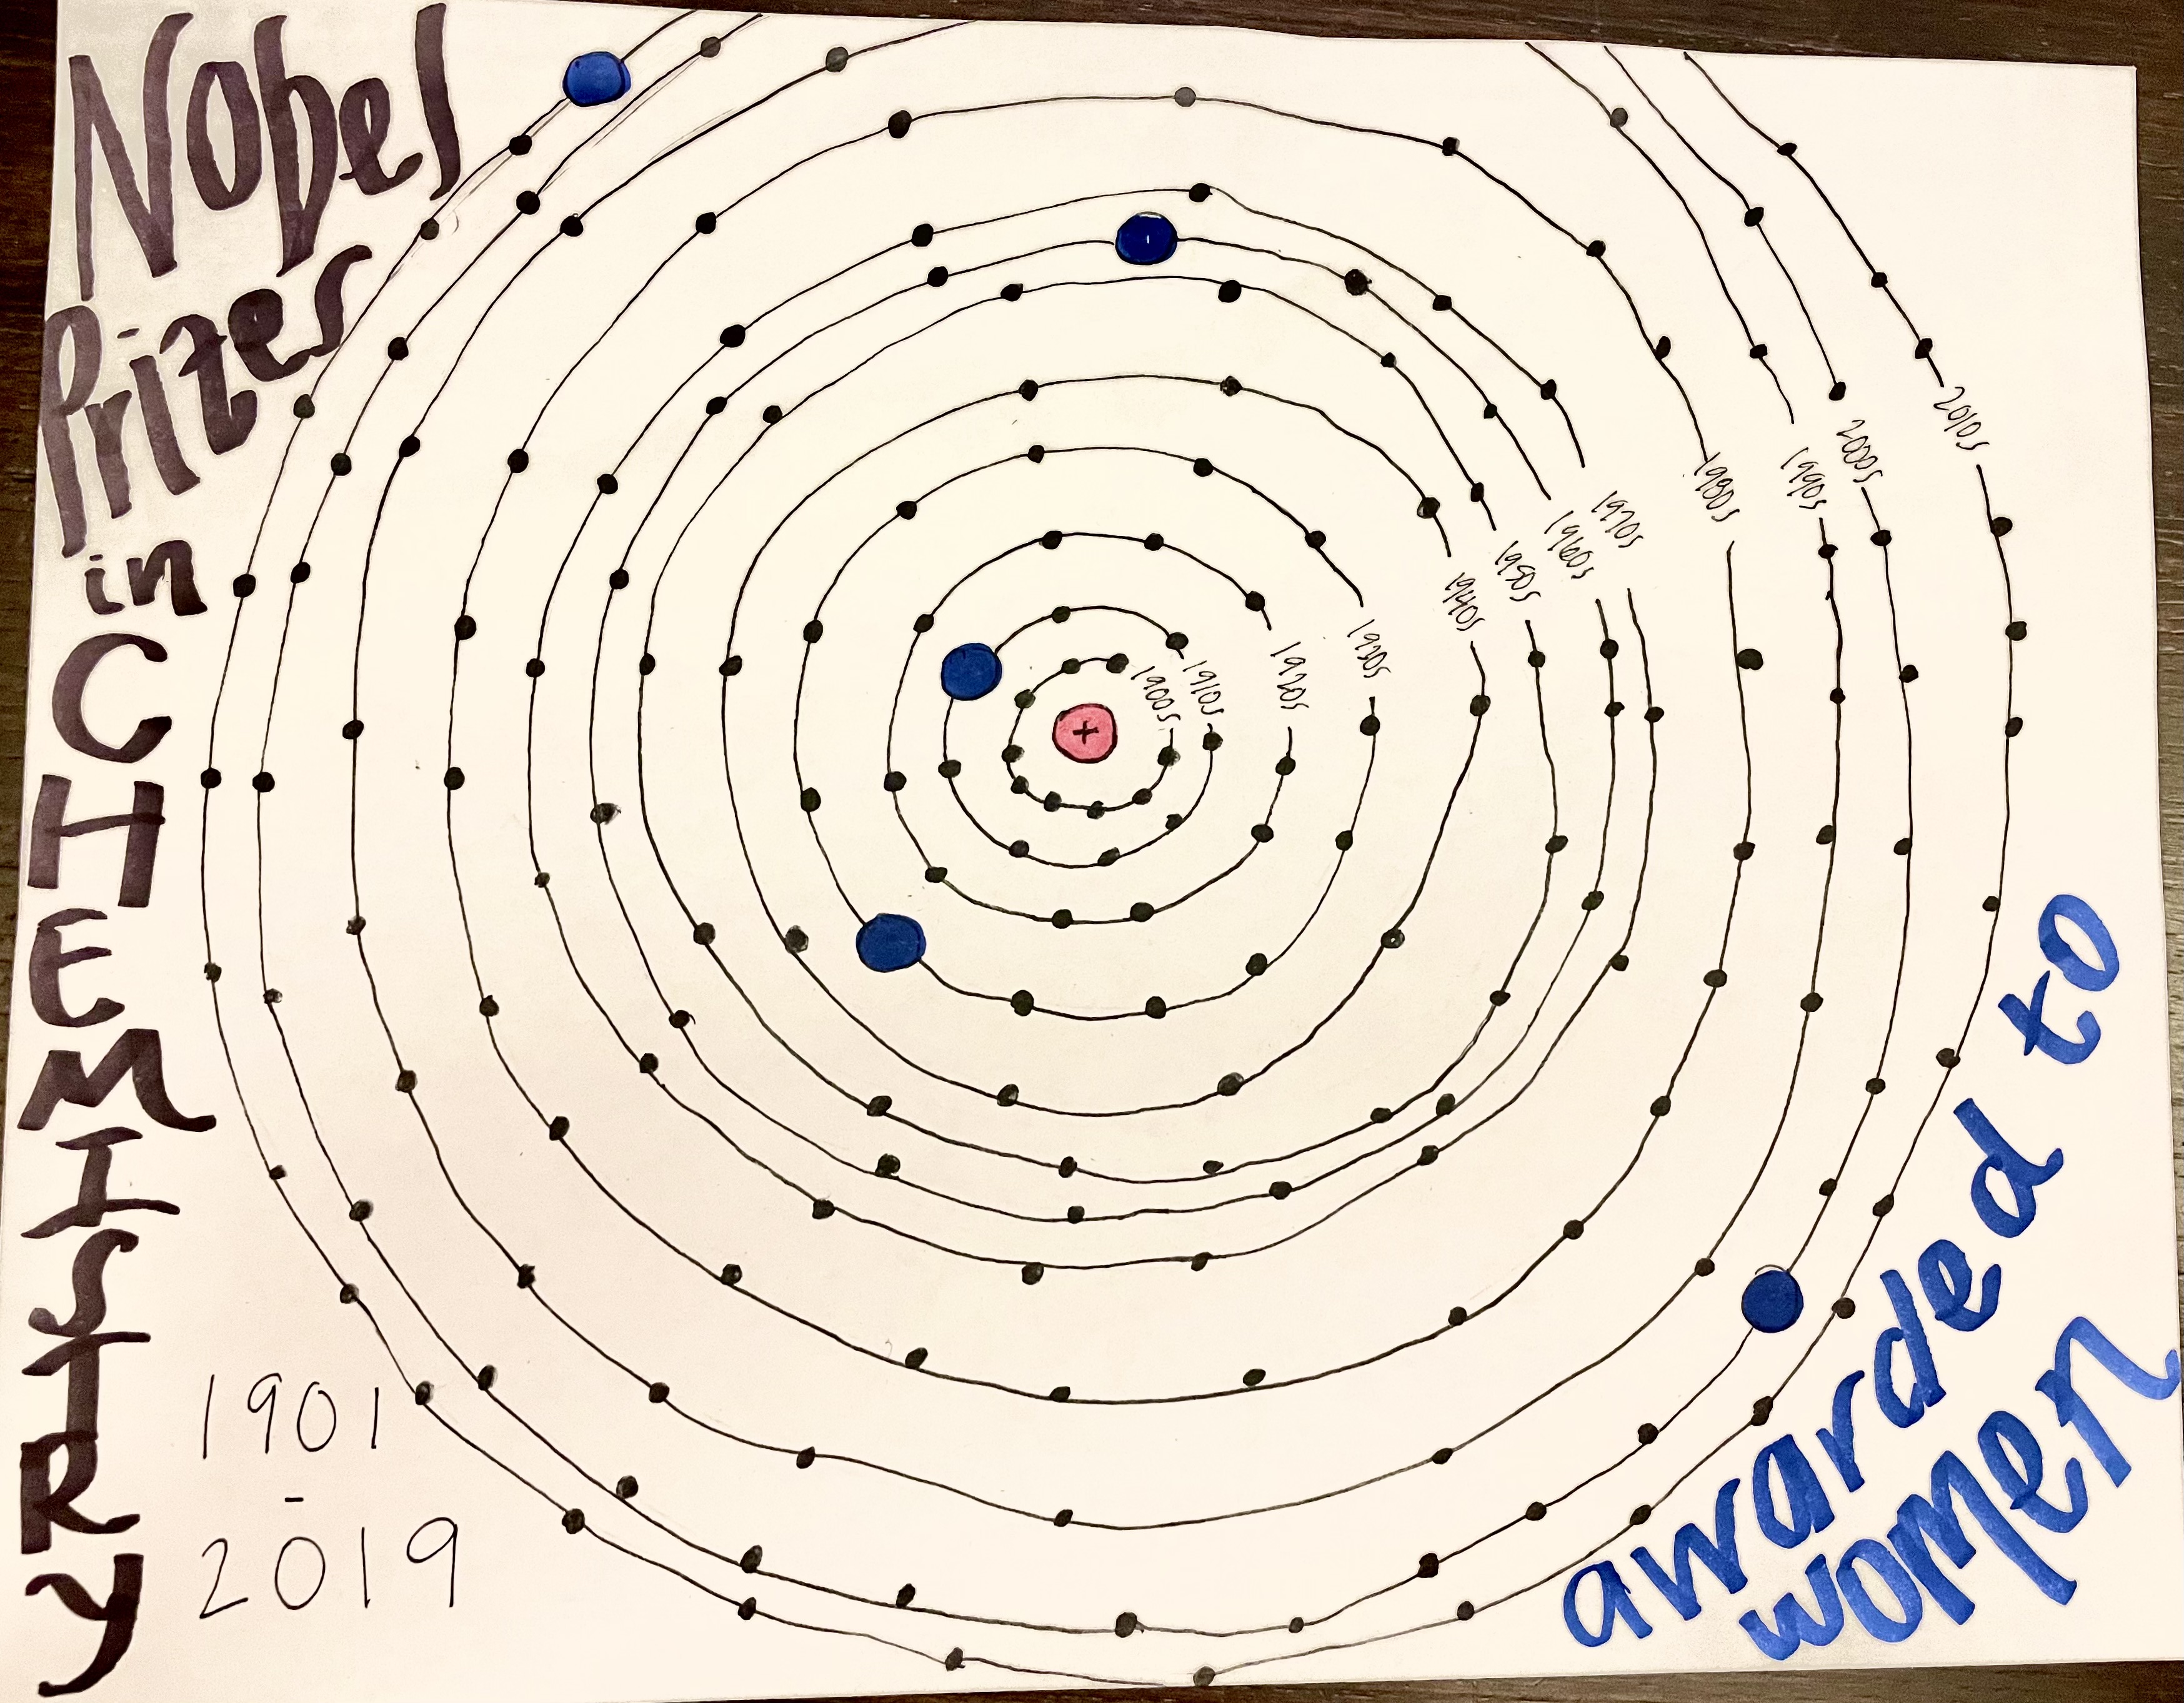 Nobel
Prizes
in
CHEMISTRY
1901
-
2019
1900s
1910s
1920s
1930s
1940s
1950s
1960s
1970s
1980s
1990s
2000s
2010s
awarded to
women
+